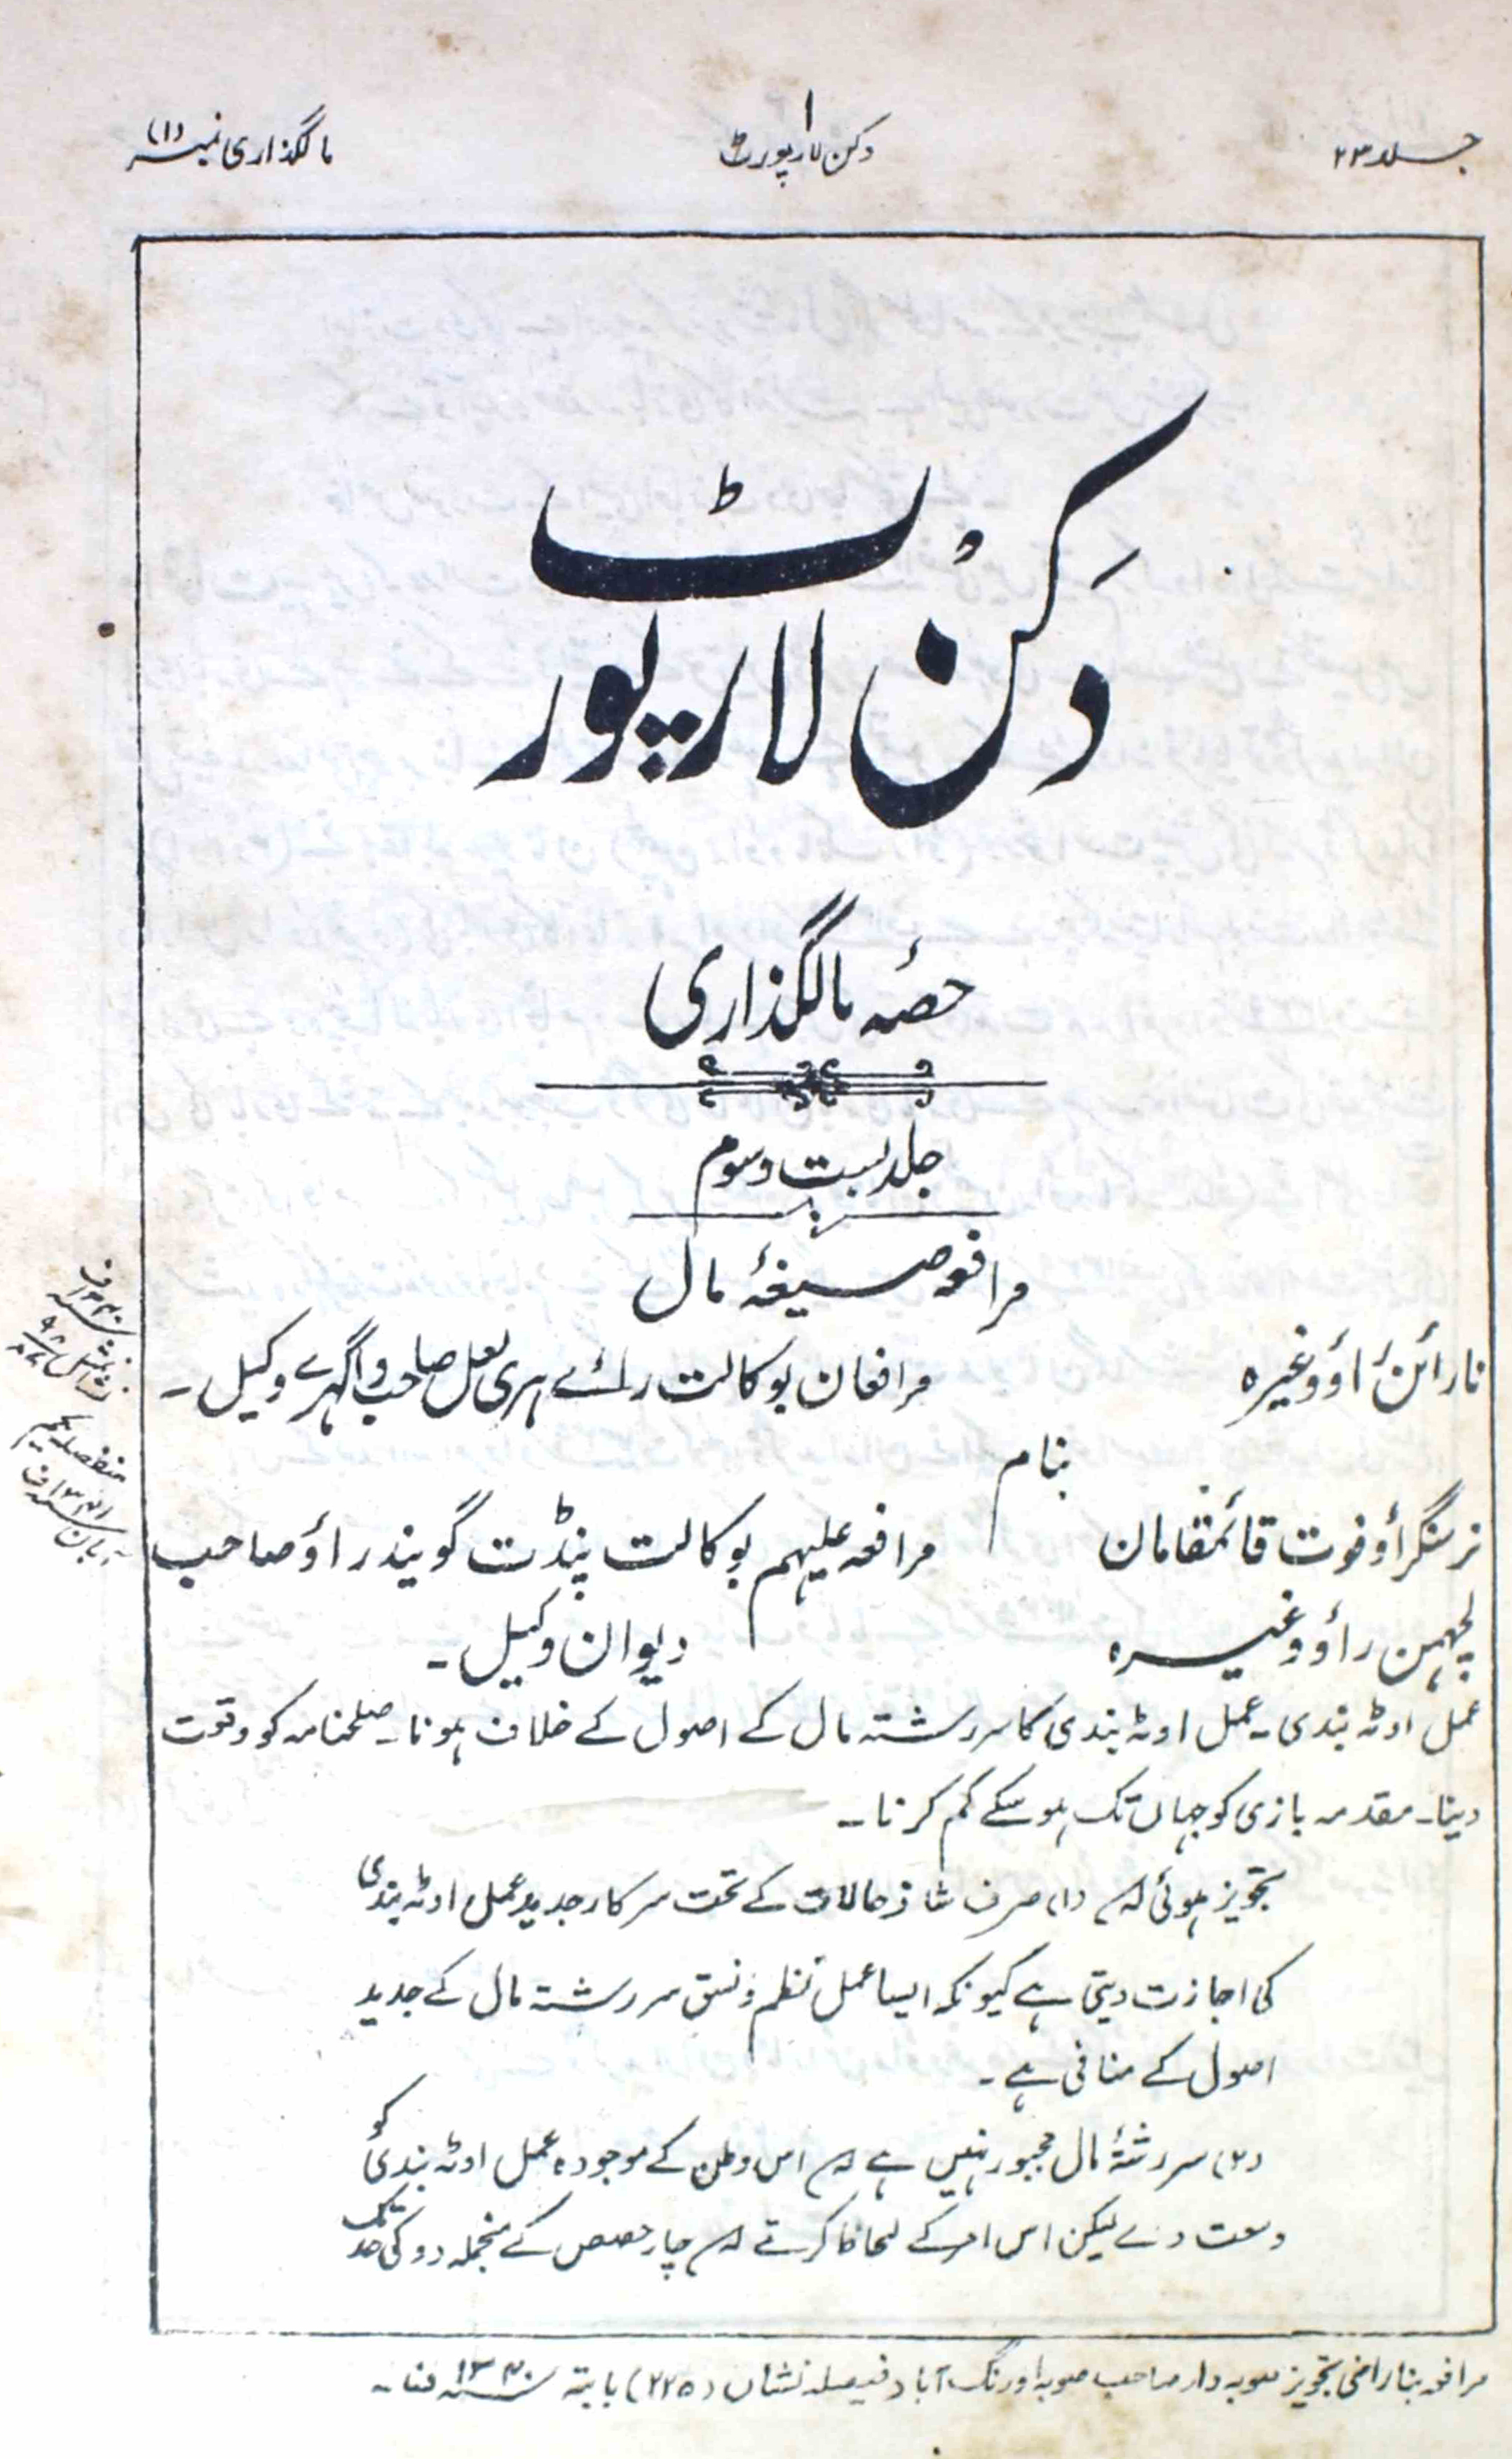 جلد ۲۳
۱
دکن لا رپورٹ
مالگذاری نمبر (۱)
دکن لا رپورٹ
حصۂ مالگذاری
جلد بست و سوم
مرافعہ صیغۂ مال
نارائن راؤ وغیرہ مرافعان بوکالت رائے ہری لعل صاحب واگہرے وکیل۔
بنام
نرسنگراؤ فوت قائمقامان مرافعہ علیہم بوکالت پنڈت گویند راؤ صاحب
لچہمن راؤ وغیرہ دیوان وکیل۔
نشان ۱۳۴۰ف
منفصلہ یکم
آبان ۱۳۴۱ف
عمل اوٹہ بندی۔ عمل اوٹہ بندی کا سررشتہ مال کے اصول کے خلاف ہونا۔ صلحنامہ کو وقعت
دینا۔ مقدمہ بازی کو جہاں تک ہو سکے کم کرنا۔
تجویز ہوئی کہ (۱) صرف شاذ حالات کے تحت سرکار جدید عمل اوٹہ بندی
کی اجازت دیتی ہے کیونکہ ایسا عمل نظم و نسق سررشتہ مال کے جدید
اصول کے منافی ہے۔
(۲) سررشتۂ مال مجبور نہیں ہے کہ اس وطن کے موجودہ عمل اوٹہ بندی کو
وسعت دے لیکن اس امر کے لحاظ کرتے کہ چار حصص کے منجملہ دو کی حد تک
مرافعہ بناراضی تجویز صوبہ دار صاحب صوبہ اورنگ آباد فیصلہ نشان (۲۲۵) بابتہ ۱۳۴۰ف۔